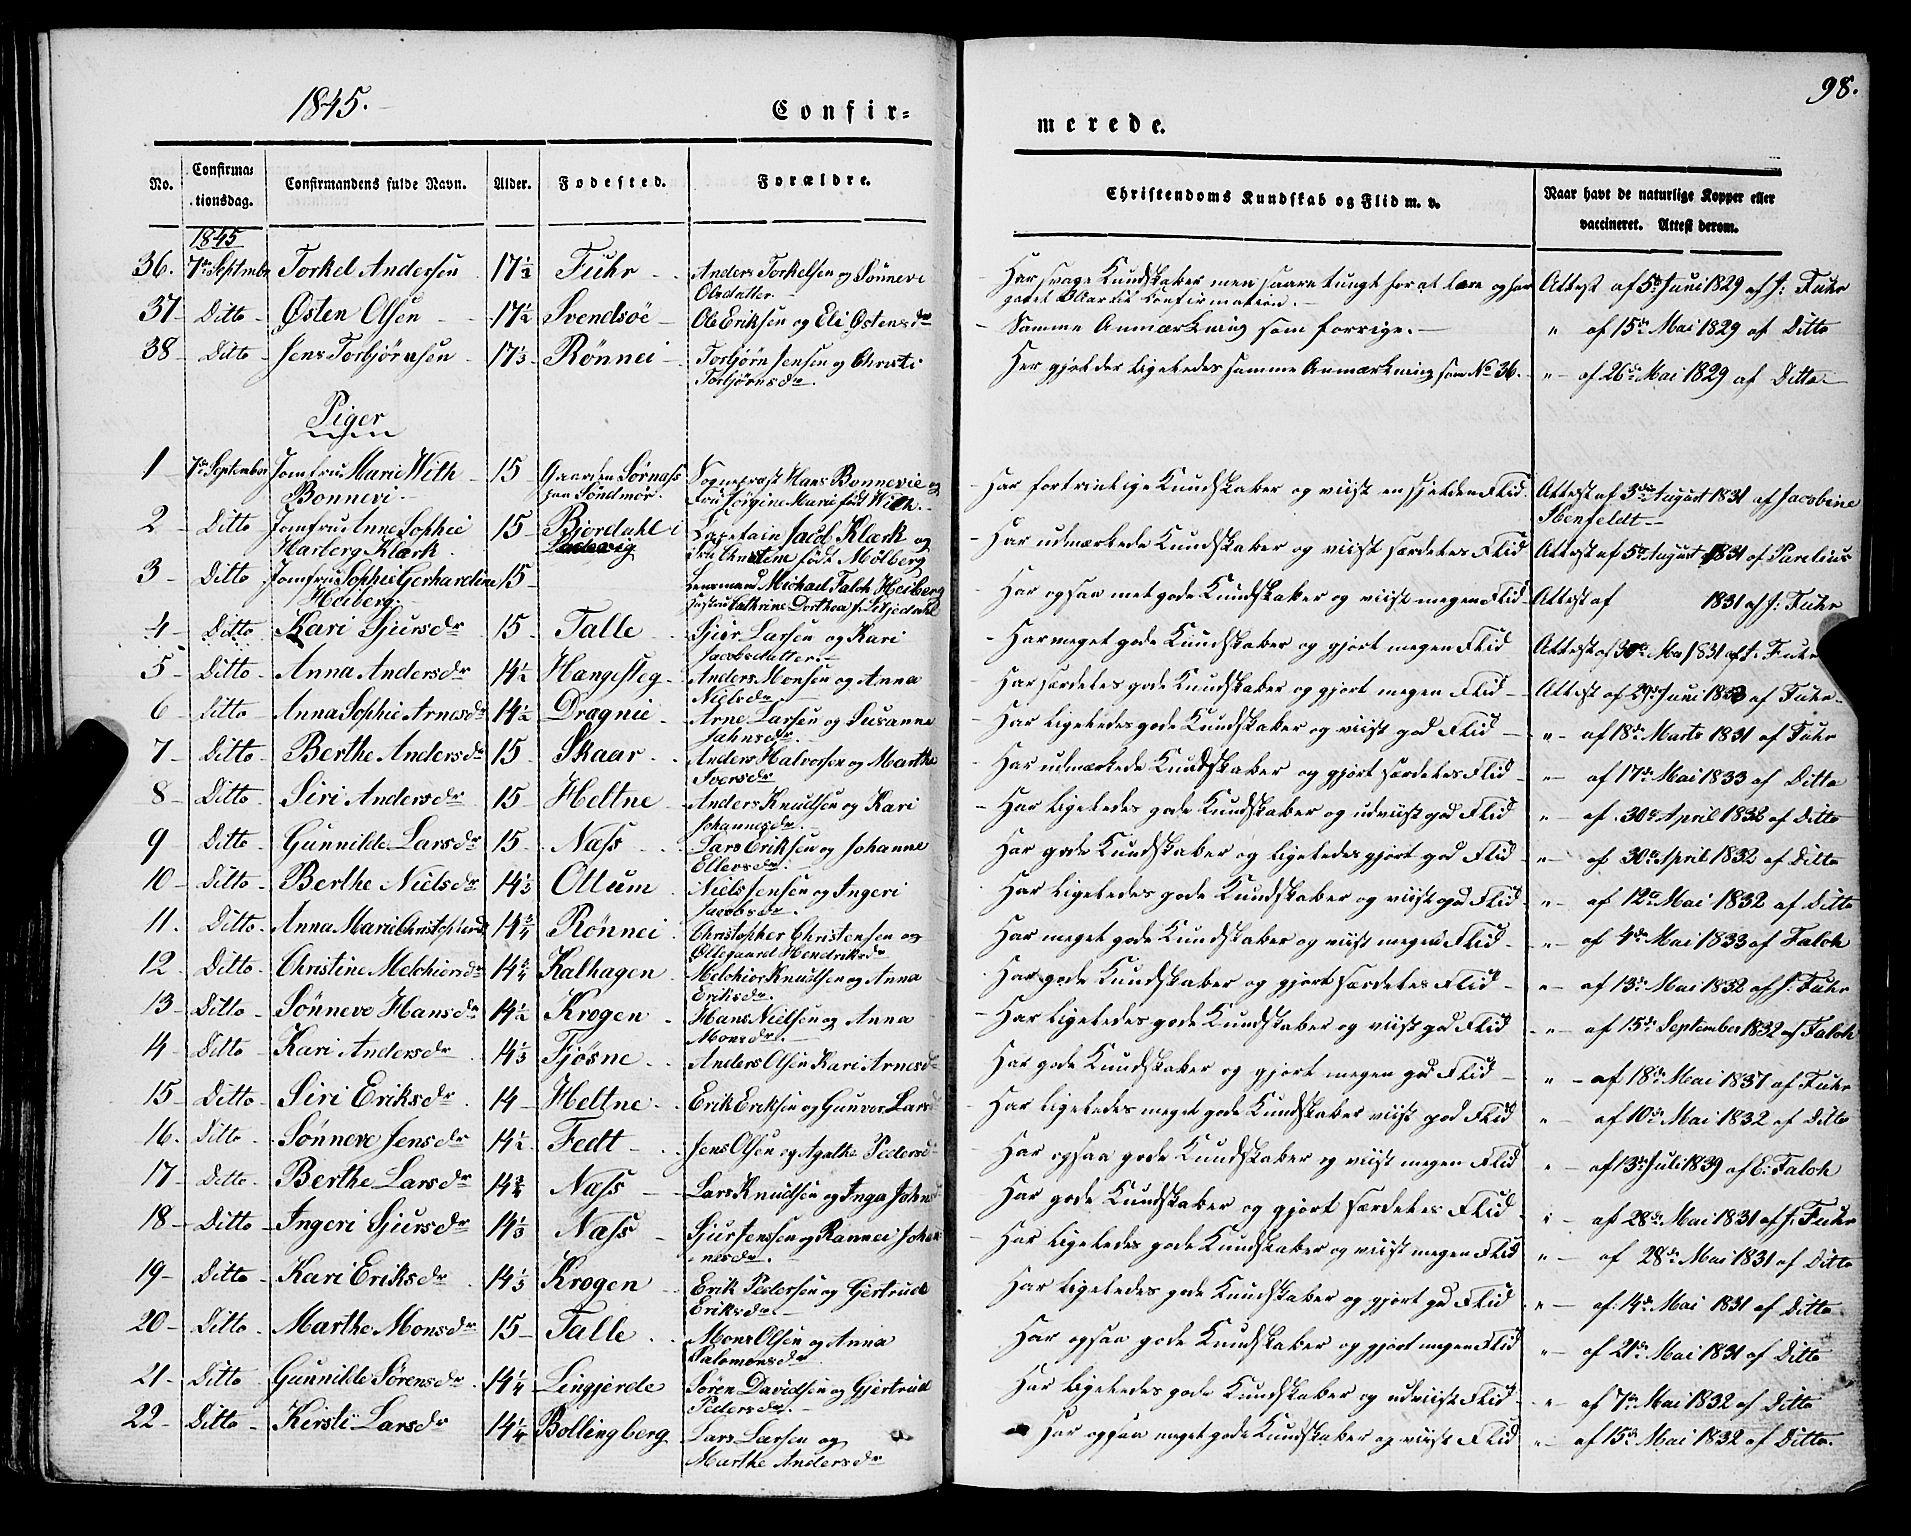 1845.
Confir=
No. Confirmationsdag. Confirmandens fulde Navn. Alder. Fødested. Forældre.
1845
36. 7de Septmbr Torkel Andersen 17½ Fuhr Anders Torkelsen og Sønnevi
Olsdatter
37 Ditto Østen Olsen 17½ Svendsøe Ole Eriksen og Eli Østensdr
38 Ditto Jens Torbjørnsen 17⅓ Rønnei Torbjørn Jensen og Christi
Torbjørnsdr
Piger
1 7de September Jomfru Marie With 15 Gaarden Sørnæss Sognepræst Hans Bonnevie og
Bonnevi paa Søndmør. Fru Jørgine Marie født With
2 Ditto Jomfru Anne Sophie 15 Bjordahl i Capetain Jacob Klærk og
Harberg Klærk Fru Christine født Mølberg
3 Ditto Jomfru Sophie Gerhardine 15 Lensmand Michael Faloh Heiberg
Heiberg Hustru Cathrine Dorthea
4 Ditto Kari Sjursdr 15 Talle Sjur Larsen og Kari
Jacobsdatter
5 Ditto Anna Andersdr 14½ Hangesteg Anders Monsen og Anna
Nielsdr
6 Ditto Anna Sophie Arnesdr 14½ Dragnie Arne Larsen og Susanne
Jahnsdr
7 Ditto Berthe Andersdr 15 Skaar Anders Halvorsen og Marthe
Iversdr
8 Ditto Siri Andersdr 15 Heltne Anders Knudsen og Kari
Johannesdr
9 Ditto Gunnilde Larsdr 15 Næss Lars Eriksen og Johanne
Ellersdr
10 Ditto Berthe Nielsdr 14⅓ Ottum Niels Jensen og Ingeri
Jacobsdr
11. Ditto Anna Marie Christophersdr 14¾ Rønnei Christopher Christensen og
Ollegaard Hendriksdr
12 Ditto Christine Melchiorsdr 14¾ Kalhagen Melchior Knudsen og Anna
Eriksdr
13 Ditto Sønneve Hansdr 14½ Krogen Hans Nielsen og Anna
Monsdr
14 Ditto Kari Andersdr 14⅓ Fjøsne Anders Olsen Kari Arnesdr
15 Ditto Siri Eriksdr 14 Heltne Erik Eriksen og Gunvor Larsd
16. Ditto Sønneve Jensdr 14½ Fedt Jens Olsen og Agathe Pedersd
17 Ditto Berthe Larsdr 14¾ Næss Lars Knudsen og Inga Johns
18 Ditto Ingeri Sjursdr 14⅓ Næss Sjur Jenssen og Rannei Johan
nesdr
19 Ditto Kari Eriksdr 14⅓ Krogen Erik Pedersen og Gjertrude
Eriksdr
20 Ditto Marthe Monsdr 15 Talle Mons Olsen og Anna
Salomonsdr
21 Ditto Gunnilde Sørensdr 14¼ Lingjerde Søren Davidsen og Gjertrud
Pedersdr
22 Ditto Kirsti Larsdr 14¼ Bollingberg Lars Larsen og
Marthe Andersdr
98.
merede.
Christendoms Kundskab og Flid m. v. Naar havt de naturlige Kopper eller
vaccineret. Attest derom.
Har svage Kundskaber men saare tungt for at lære og har Attest af 5de Juni 1829 af J: Fuhr
Confirmation.
Samme Anmærkning som forrige. " af 15de Mai 1829 af Ditto
Her gjelder ligeledes samme Anmærkning som No 36. " af 26de Mai 1829 af Ditto
Har fortrinlige Kundskaber og viist en sjelden Flid. Attest af 3die August 1831 af Jacobine
Stenfeldt
Har udmærkede Kundskaber og viist særdeles Flid Attest af 5te August 1831 af Parelius
Har ogsaa met gode Kundskaber og viist megen Flid Attest af 1831 af J: Fuhr
Har meget gode Kundskaber og gjort megen Flid Attest af 30te Ma 1831 af J. Fuhr
Har særdeles gode Kundskaber og gjort megen Flid Attest af 29de Juni af Fuhr
Har ligeledes gode Kundskaber og viist god Flid " af 18de Marts 1831 af Fuhr
Har udmærkede Kundskaber og gjort særdeles Flid " af 17de Mai 1833 af Ditto
Har ligeledes gode Kundskaber og udviist god Flid " af 30te April 1832 af Ditto
Har gode Kundskaber og ligeledes gjort god Flid " af 30te April 1832 af Ditto
Har ligeledes gode Kundskaber og viist god Flid " af 12te Mai 1832 af Ditto
Har meget gode Kundskaber og viist megen Flid " af 4de Mai 1833 af Faloh
Har gode Kundskaber og gjort særdeles Flid " af 13de Mai 1832 af J: Fuhr
Har ligeledes gode Kundskaber og viist god Flid " af 15de September 1832 af Faloh
Har gode Kundskaber og gjort megen god Flid " af 18de Mai 1837 af Fuhr
Har ligeledes meget gode Kundskaber viist god Flid " af 10de Mai 1832 af Ditto
Har ogsaa gode Kundskaber og viist megen Flid " af 13de Juli 1839 af E: Faloh
Har gode Kundskaber og gjort særdeles Flid " af 28de Mai 1831 af J: Fuhr
Har ligeledes gode Kundskaber og viist megen Flid " af 28de Mai 1831 af Ditto
Har ligeledes gode Kundskaber og gjort god Flid " af 14de Mai 1831 af Ditto
Har ogsaa gode Kundskaber og gjort megen Flid " af 21de Mai 1831 af Ditto
Har ligeledes gode Kundskaber og udviist Flid " af 7de Mai 1832 af Ditto
Har ogsaa meget gode Kundskaber og viist Flid " af 15de Mai 1832 af Ditto.